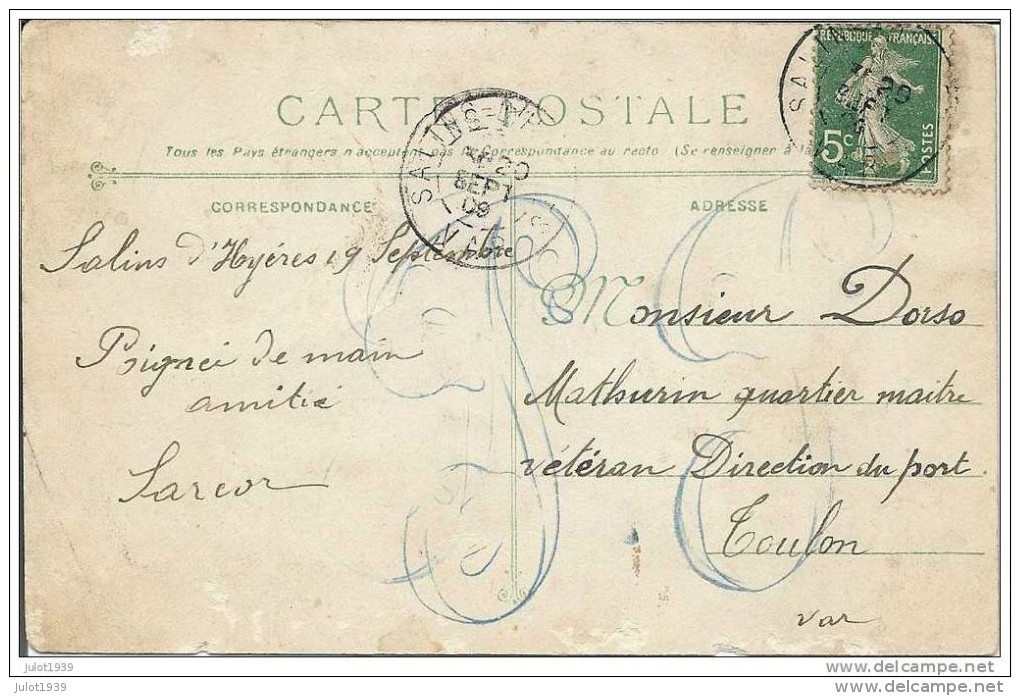 CARTE POSTALE
Tous les Pays étrangers n'acceptent pas la Correspondance au recto (Se renseigner à la
CORRESPONDANCE
ADRESSE
REPUBLIQUE FRANÇAISE
5c
POSTES
20
SEPT
SALINS-D'HY
20
SEPT
09
VAR
Salins d'Hyéres 19 Septembre
Poignée de main
amitié
Sarcor
Monsieur Dorso
Mathurin quartier maitre
vétéran Direction du port
Toulon
Var
julot1939
julot1939
www.delcampe.net
www.delcampe.net